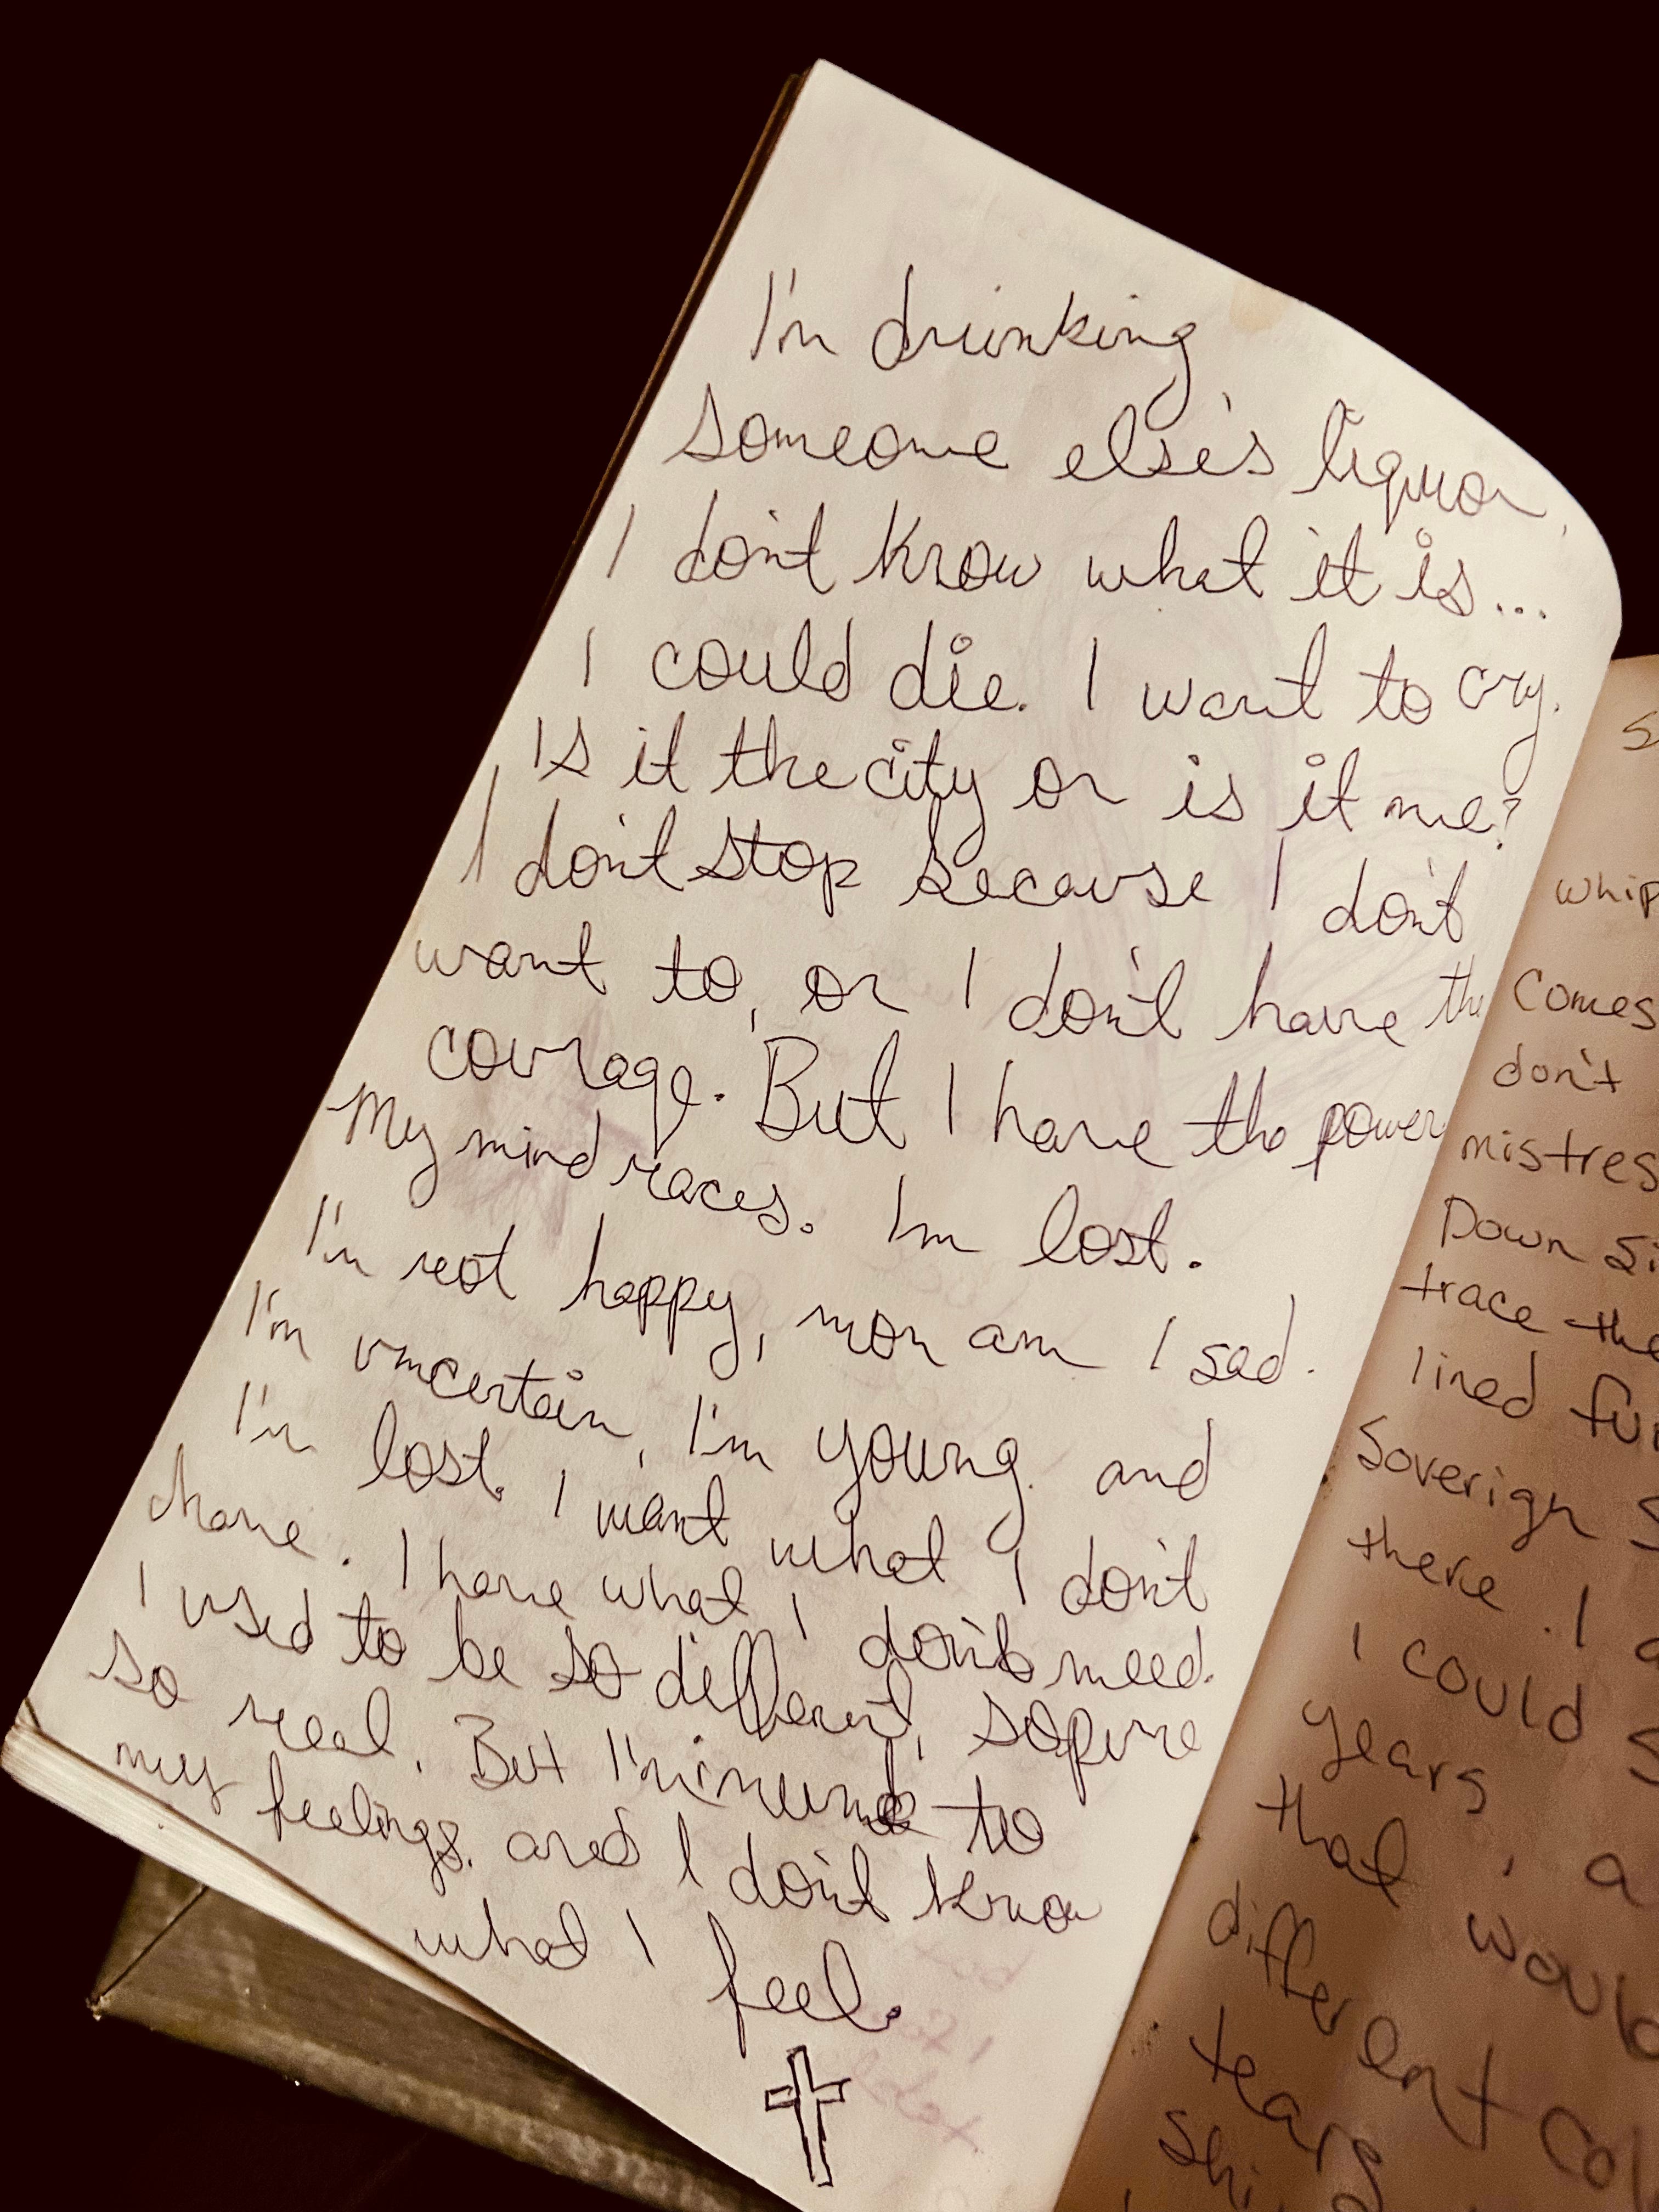 I'm drinking
someone else's liquor.
I don't know what it is...
I could die. I want to cry.
Is it the city or is it me?
I don't stop because I don't
want to, or I don't have the
courage. But I have the power
My mind races. I'm lost.
I'm not happy, nor am I sad.
I'm uncertain, I'm young and
I'm lost. I want what I don't
have. I have what I don't need.
I used to be so different, so pure
so real. But I'm to
my feelings, and I don't know
what I feel.
whip
Comes
don't
mistres
Down si
trace the
lined fu
Soverign S
there. I a
I could S
years, a
that would
different col
tears
shi